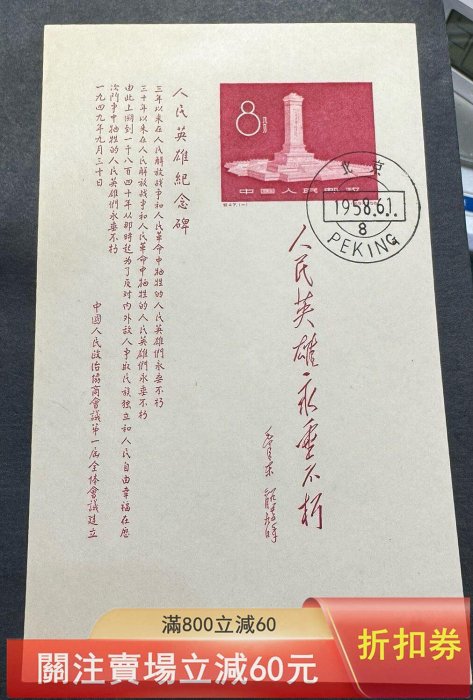 8分
中國人民邮政
北京
1958.6.1.
8
PEKING
人民英雄永垂不朽
毛泽东
人民英雄紀念碑
三年以来在人民解放战爭和人民革命中牺牲的人民英雄們永垂不朽
三十年以来在人民解放战爭和人民革命中牺牲的人民英雄們永垂不朽
由此上溯到一千八百四十年从那时起为了反对内外敌人爭取民族独立和人民自由幸福在历
次鬥爭中牺牲的人民英雄們永垂不朽
一九四九年九月三十日
中國人民政治協商會議第一届全体會議建立
滿800立減60
關注賣場立減60元
折扣券